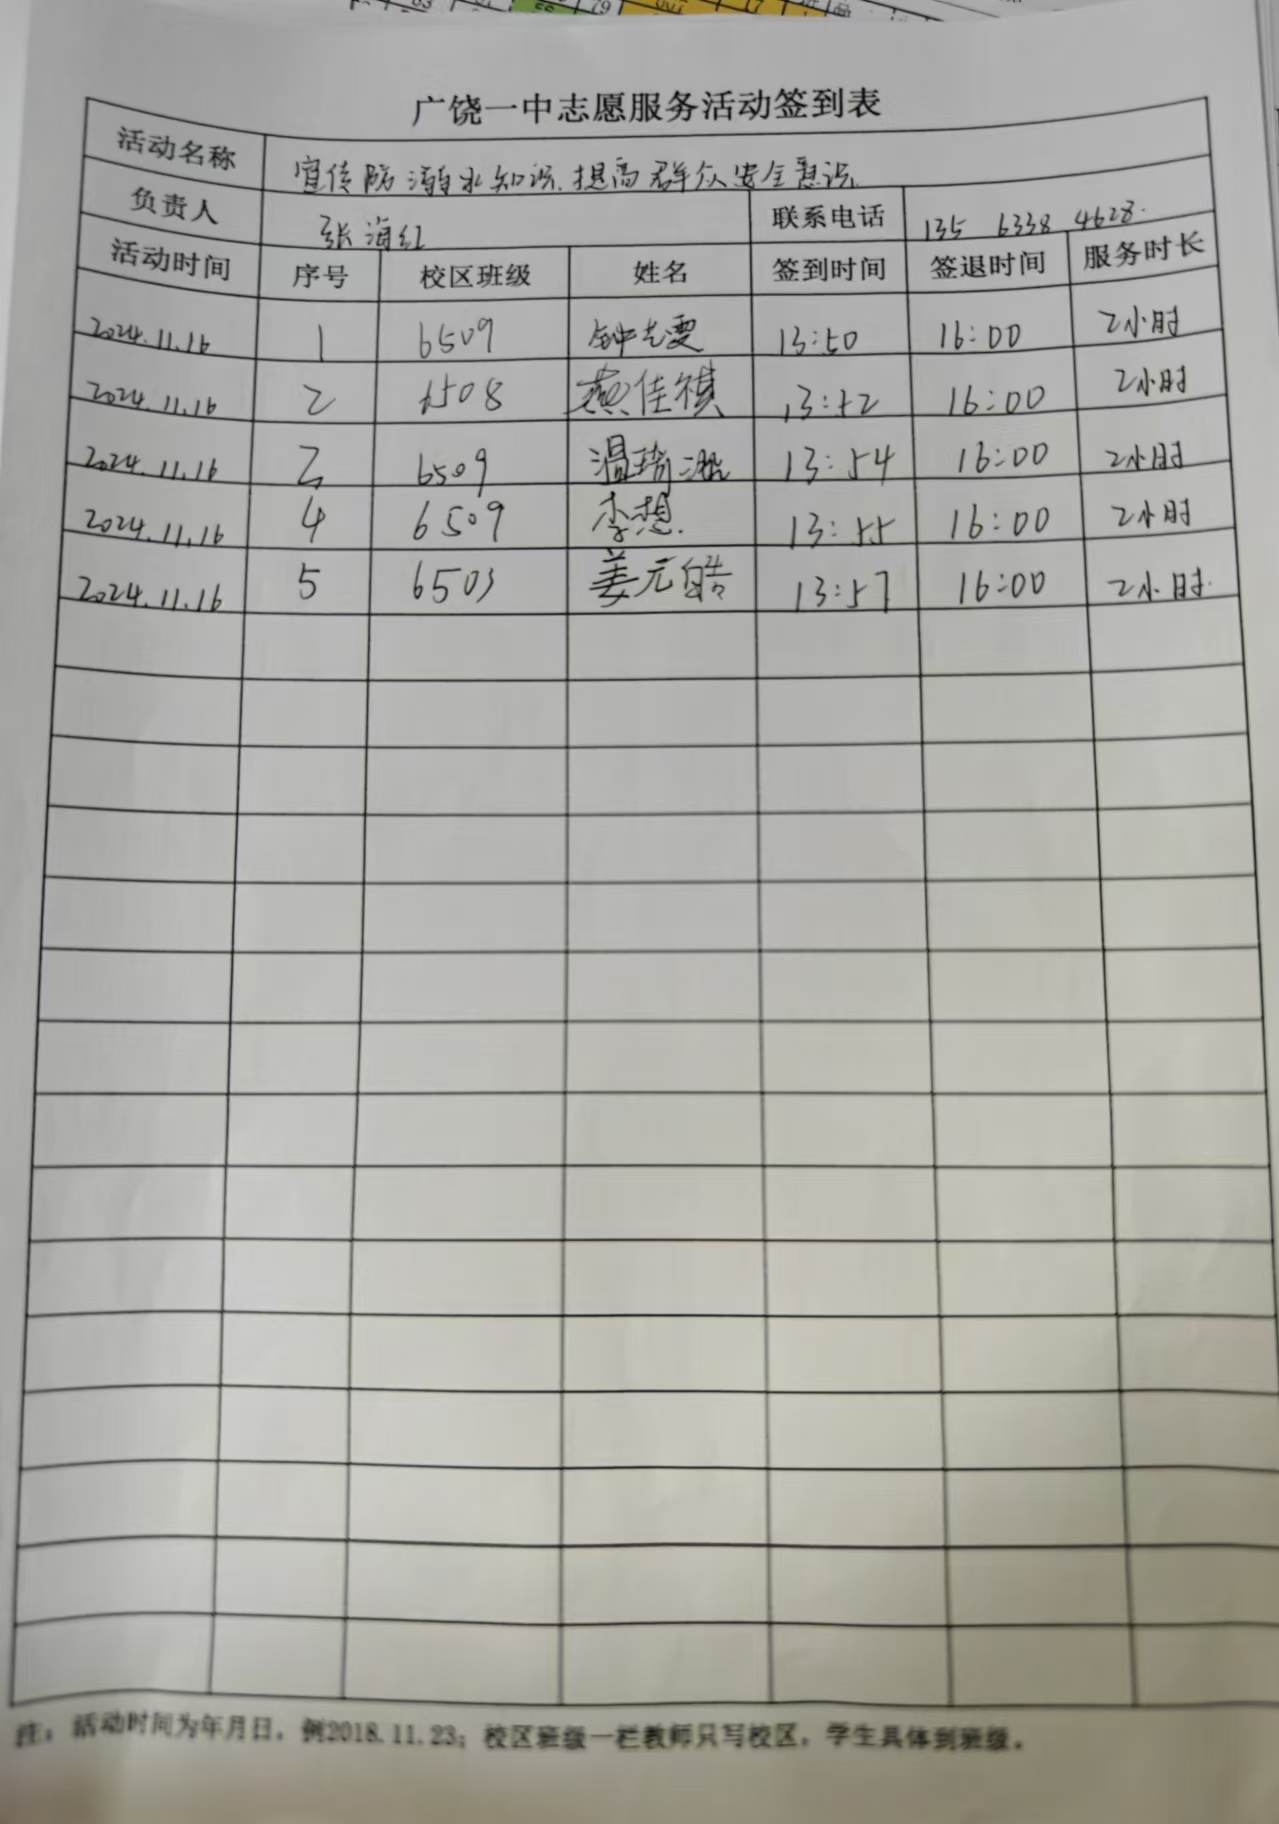 广饶一中志愿服务活动签到表
活动名称 宣传防溺水知识.提高群众安全意识.
负责人 张海红 联系电话 135 6338 4628.
活动时间 序号 校区班级 姓名 签到时间 签退时间 服务时长
2024.11.16 1 6509 13:50 16:00 2小时
2024.11.16 2 6508 燕佳祺 13:52 16:00 2小时
2024.11.16 3 6509 13:54 16:00 2小时
2024.11.16 4 6509 李想. 13:55 16:00 2小时
2024.11.16 5 6503 姜元皓 13:57 16:00 2小时.
注：活动时间为年月日，例2018.11.23；校区班级一栏教师只写校区，学生具体到班级。